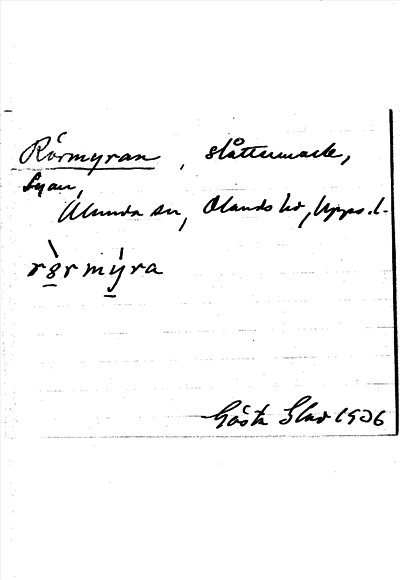 Rörmyran, slåttermark,
Byan,
Alunda sn, Olands hd, Upps. l.
rörmýra
Gösta 1936